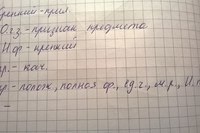 Крепкий - прил.
О.г.з. - признак предмета
Н.ф - крепкий
пр. - кач.
пр - полож., полная ф., ед.ч., м.р., И.п
-